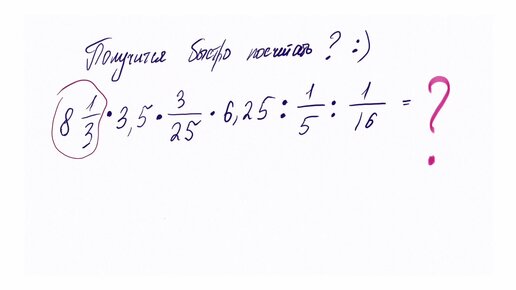 Получится быстро посчитать ? :)
8 1/3 · 3,5 · 3/25 · 6,25 : 1/5 : 1/16 = ?